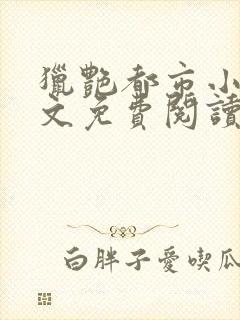 獵艷都市小
文免費閱讀
白胖子愛喫瓜